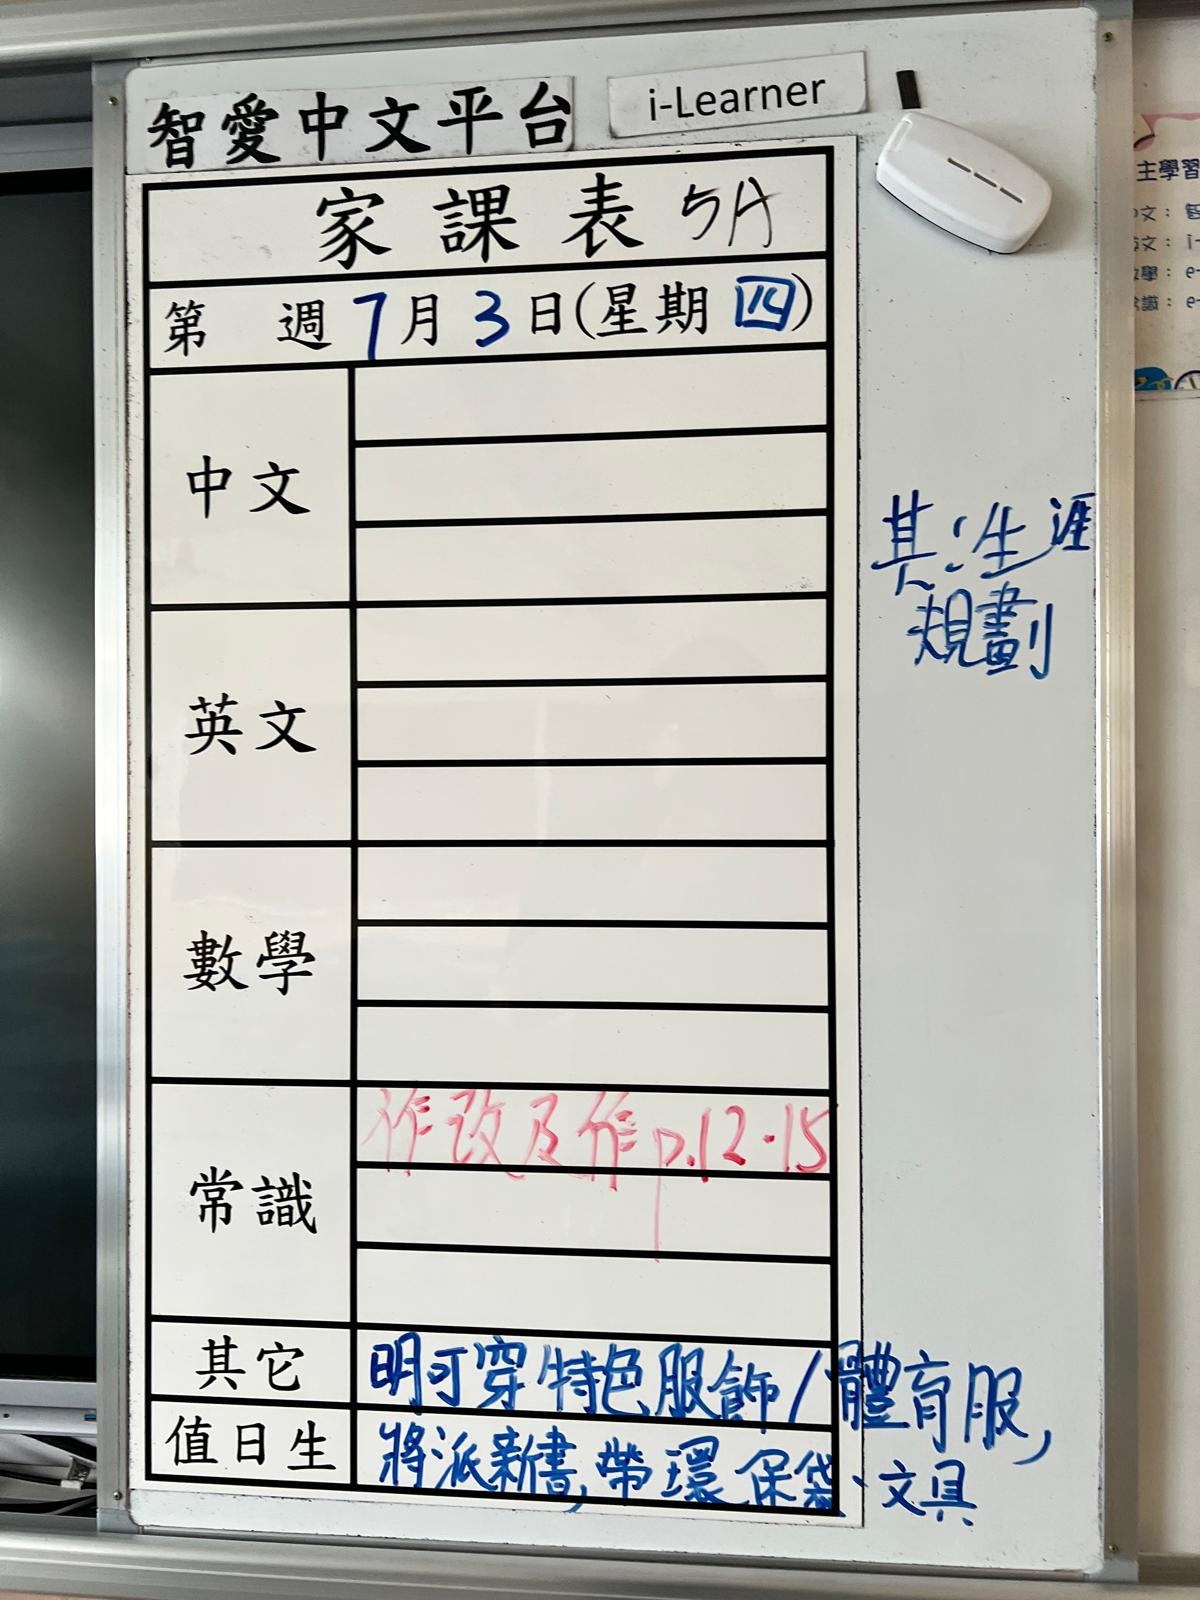 智愛中文平台
i-Learner
家課表 5A
第 週 7月3日(星期四)
中文
英文
數學
常識
作改及作p.12-15
其它
明可穿特色服飾/體育服,
值日生
將派新書,帶環保袋、文具
其:生涯
規劃
主學習
文: 智
文: i-
學: e-
識: e-